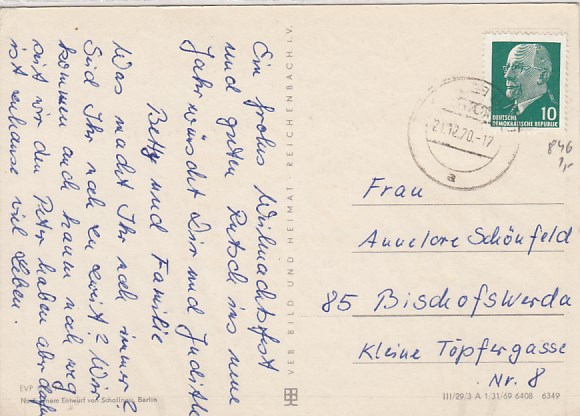 Ein frohes Weihnachtsfest
und guten Rutsch ins neue
Jahr wünscht Dir und Judith
Betty und Familie
Was macht Ihr noch immer?
Seid Ihr noch zu zweit? Wir
kommen auch kaum noch weg
seit wir den Peter haben aber dafür
ist zuhause viel Leben.
EVP
Nach einem Entwurf von Schallnau, Berlin
VEB BILD UND HEIMAT REICHENBACH I.V.
DEUTSCHE 10
DEMOKRATISCHE REPUBLIK
21.12.70.-17
a
846
1,-
Frau
Annelore Schönfeld
85 Bischofswerda
Kleine Töpfergasse
Nr. 8
III/29/3 A 1/31/69 6408 6349